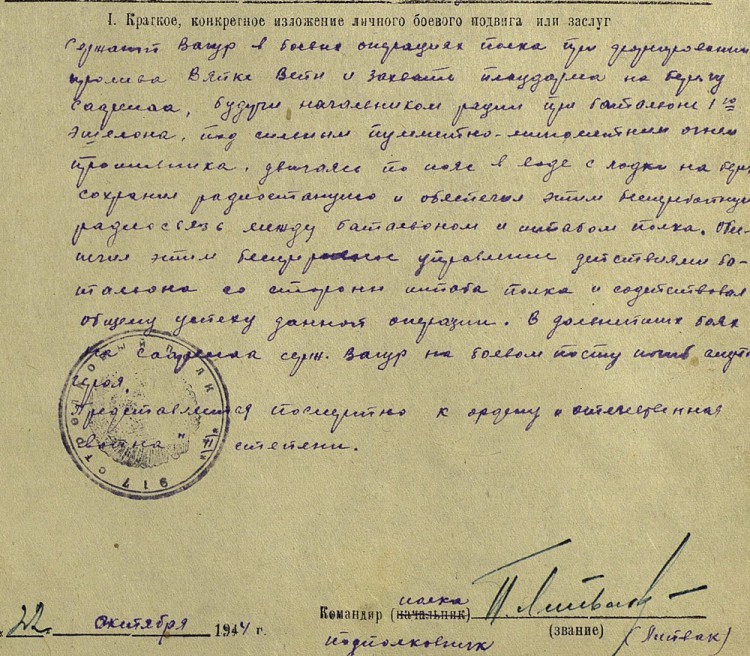 I. Краткое, конкретное изложение личного боевого подвига или заслуг
Сержант Вагур в боевых операциях полка при форсировании
пролива Вяйке Вейн и захвате плацдарма на берегу
Саарема, будучи начальником рации при батальоне 1го
эшелона, под сильным пулеметно-минометным огнем
противника, двигаясь по пояс в воде с лодки на берег
сохранил радиостанцию и обеспечил этим бесперебойную
радиосвязь между батальоном и штабом полка. Обес-
печил этим беспрерывное управление действиями ба-
тальона со стороны штаба полка и содействовал
общему успеху данной операции. В дальнейших боях
на Саарема серж. Вагур на боевом посту погиб смертью
героя.
Представляется посмертно к ордену "отечественная
война" II степени.
917 стрелковый полк
22 октября 1944 г.
Командир (начальник) полка
подполковник
(звание) (Литвак)